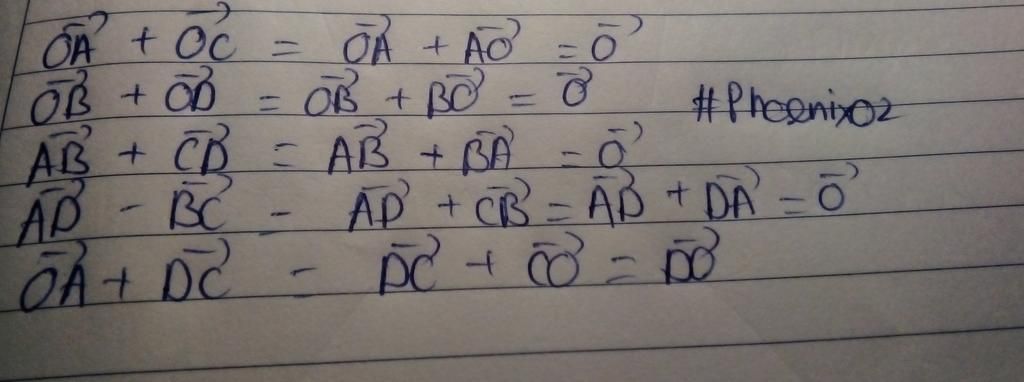 OA⃗ + OC⃗ = OA⃗ + AO⃗ = O⃗
OB⃗ + OD⃗ = OB⃗ + BO⃗ = O⃗ #Phoenix02
AB⃗ + CD⃗ = AB⃗ + BA⃗ = O⃗
AD⃗ - BC⃗ - AD⃗ + CB⃗ = AD⃗ + DA⃗ = O⃗
OA⃗ + DC⃗ - DC⃗ + CO⃗ = DO⃗